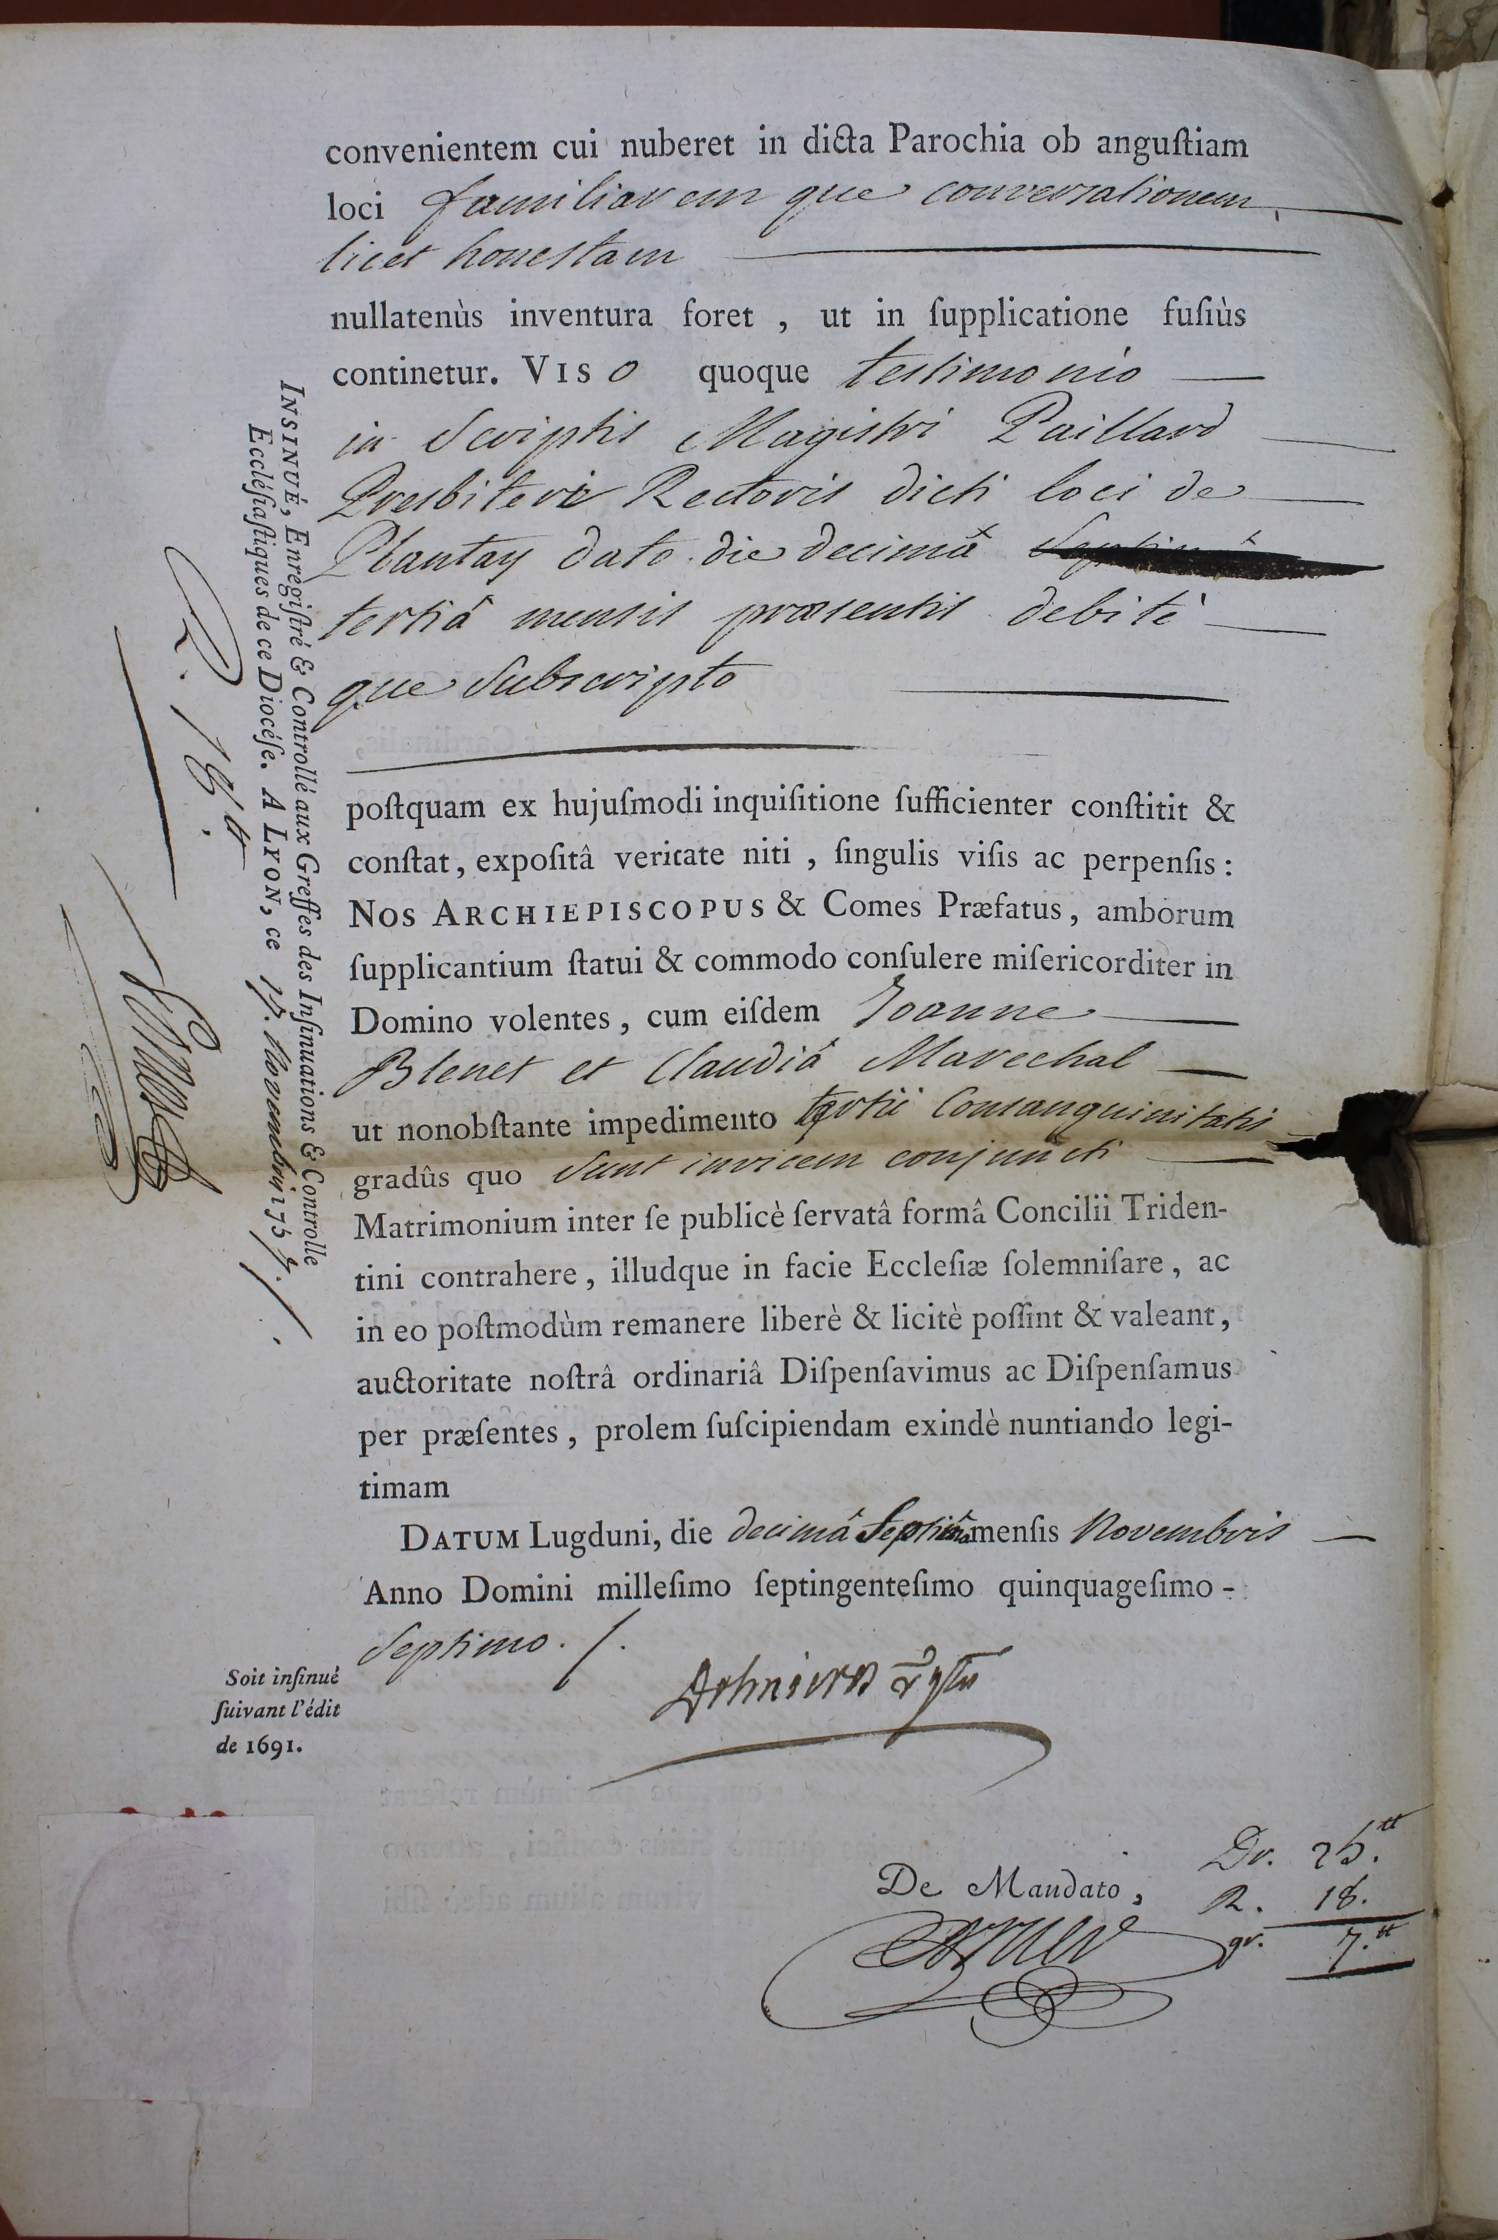 convenientem cui nuberet in dicta Parochia ob anguſtiam
loci familiarem que conversationem,
licet honestam
nullatenùs inventura foret , ut in ſupplicatione fuſiùs
continetur. VISO quoque testimonio
in Scriptis Magistri Paillard
Presbiteri Rectoris dicti loci de
Plantay dato die decimâ
tertiâ mensis præsentis debitè
que Subscripto
poſtquam ex hujuſmodi inquiſitione ſufficienter conſtitit &
conſtat, expoſitâ veritate niti , ſingulis viſis ac perpenſis :
NOS ARCHIEPISCOPUS & Comes Præfatus, amborum
ſupplicantium ſtatui & commodo conſulere miſericorditer in
Domino volentes, cum eiſdem Joanne
Blenet et Claudiâ Marechal
ut nonobſtante impedimento tertii Consanguinitatis
gradûs quo Sunt invicem conjuncti
Matrimonium inter ſe publicè ſervatâ formâ Concilii Triden-
tini contrahere, illudque in facie Eccleſiæ ſolemniſare, ac
in eo poſtmodùm remanere liberè & licitè poſſint & valeant,
auctoritate noſtrâ ordinariâ Diſpenſavimus ac Diſpenſamus
per præſentes, prolem ſuſcipiendam exindè nuntiando legi-
timam
DATUM Lugduni, die decimâ Septimâ menſis Novembris
Anno Domini milleſimo ſeptingenteſimo quinquageſimo -
Septimo. /.
Soit inſinué
ſuivant l'édit
de 1691.
De Mandato,
Dr. 25.tt
R. 18.
gr. 7.tt
INSINUÉ, Enrégiſtré & Controllé aux Greffes des Inſinuations & Controlle
Eccléſiaſtiques de ce Diocéſe. A LYON, ce 17. Novembre 1757. /.
R. 18.tt